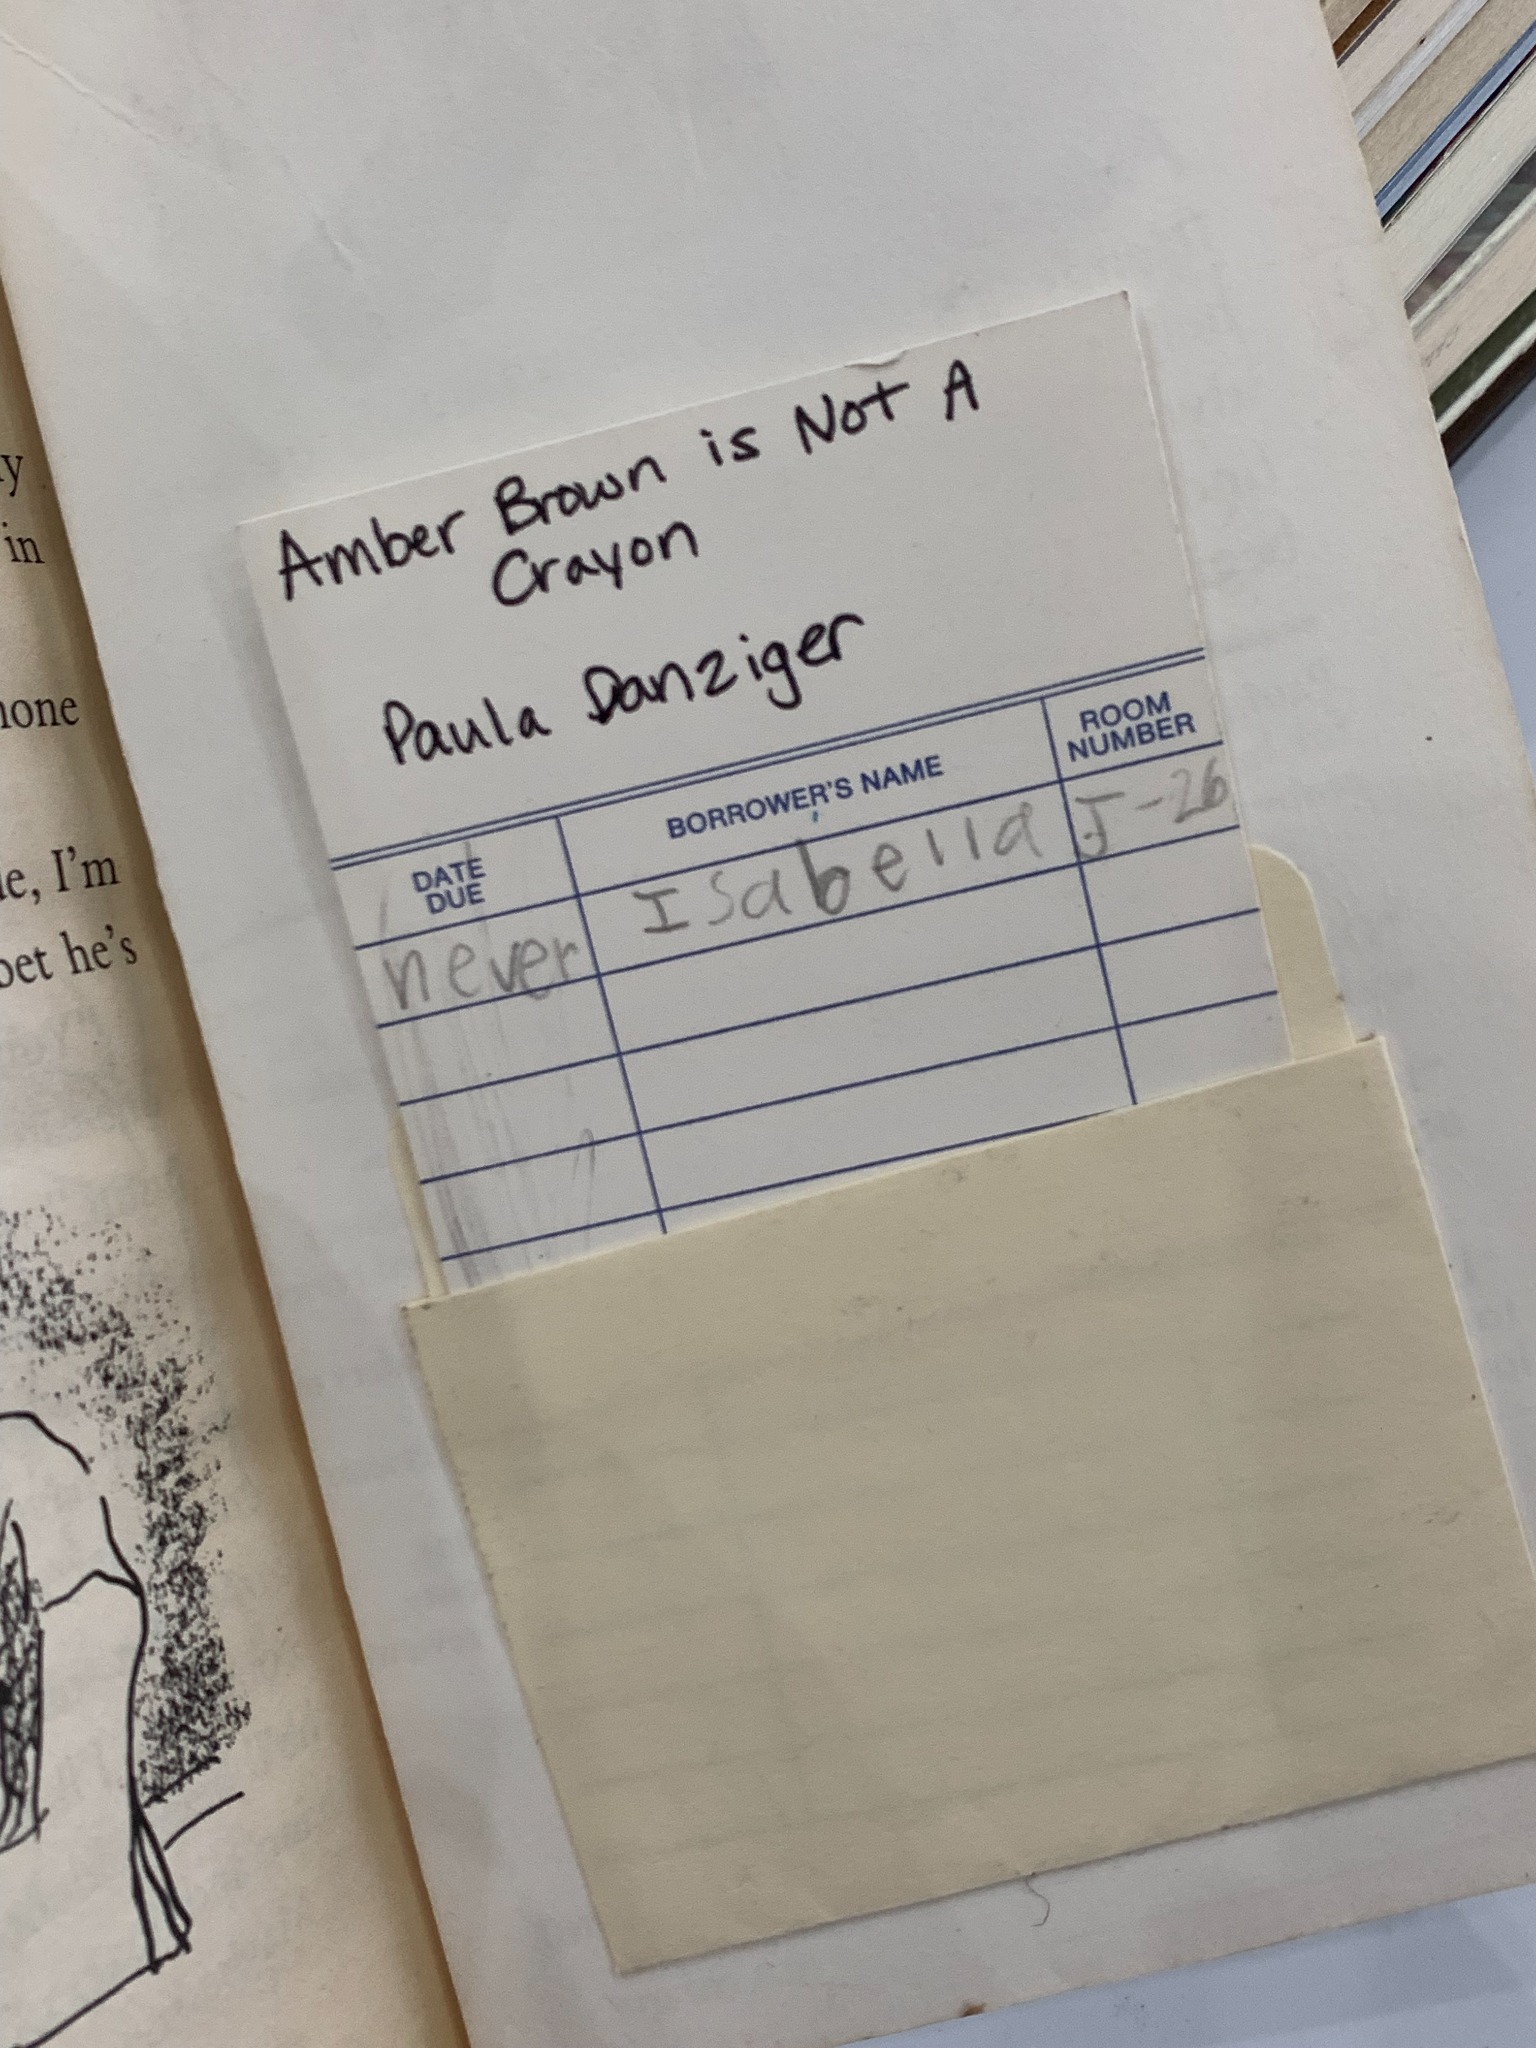 y
in
none
e, I'm
bet he's
Amber Brown is Not A
Crayon
Paula Danziger
DATE DUE
BORROWER'S NAME
ROOM NUMBER
never Isabella J-26